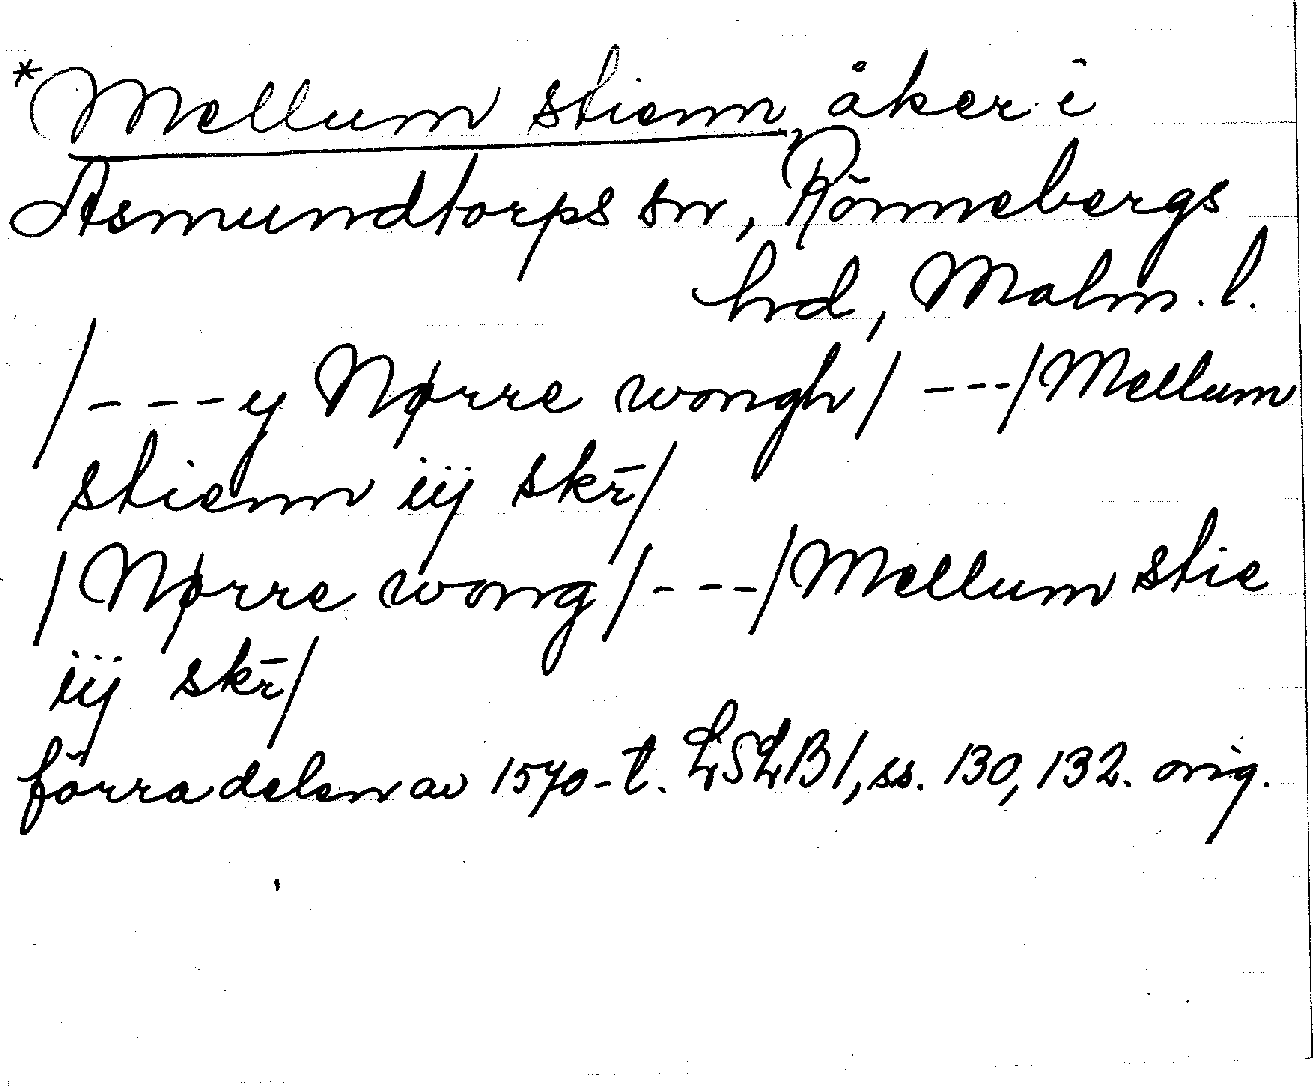 *Mellum stienn, åker i
Asmundtorps sn, Rönnebergs
hd, Malm. l.
/---y Nørre wongh/ ---/Mellum
stienn iij skr̄/
/Nørre wong/---/Mellum stie
iij skr̄/
förra delen av 1570-t. LSLB1, ss. 130, 132. orig.